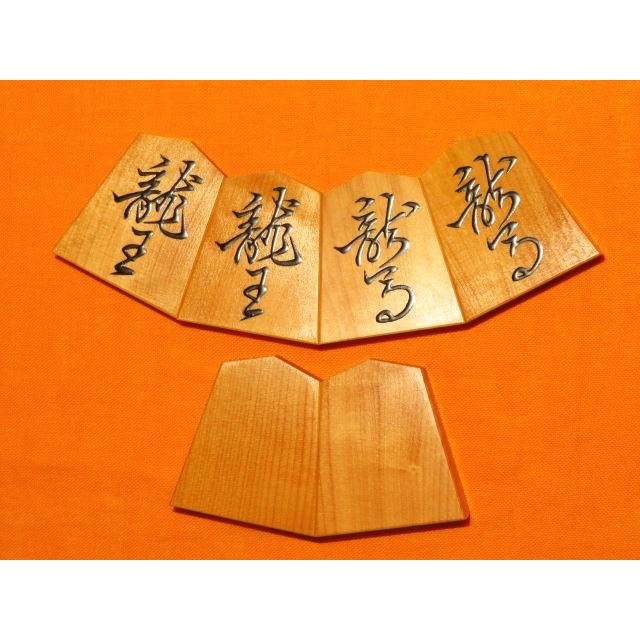 龍王
龍王
龍馬
龍馬